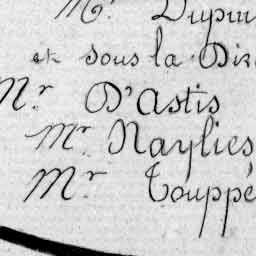 Mr. Dupui
et sous la Dire
Mr. D'Astis
Mr. Naylies
Mr. Touppé